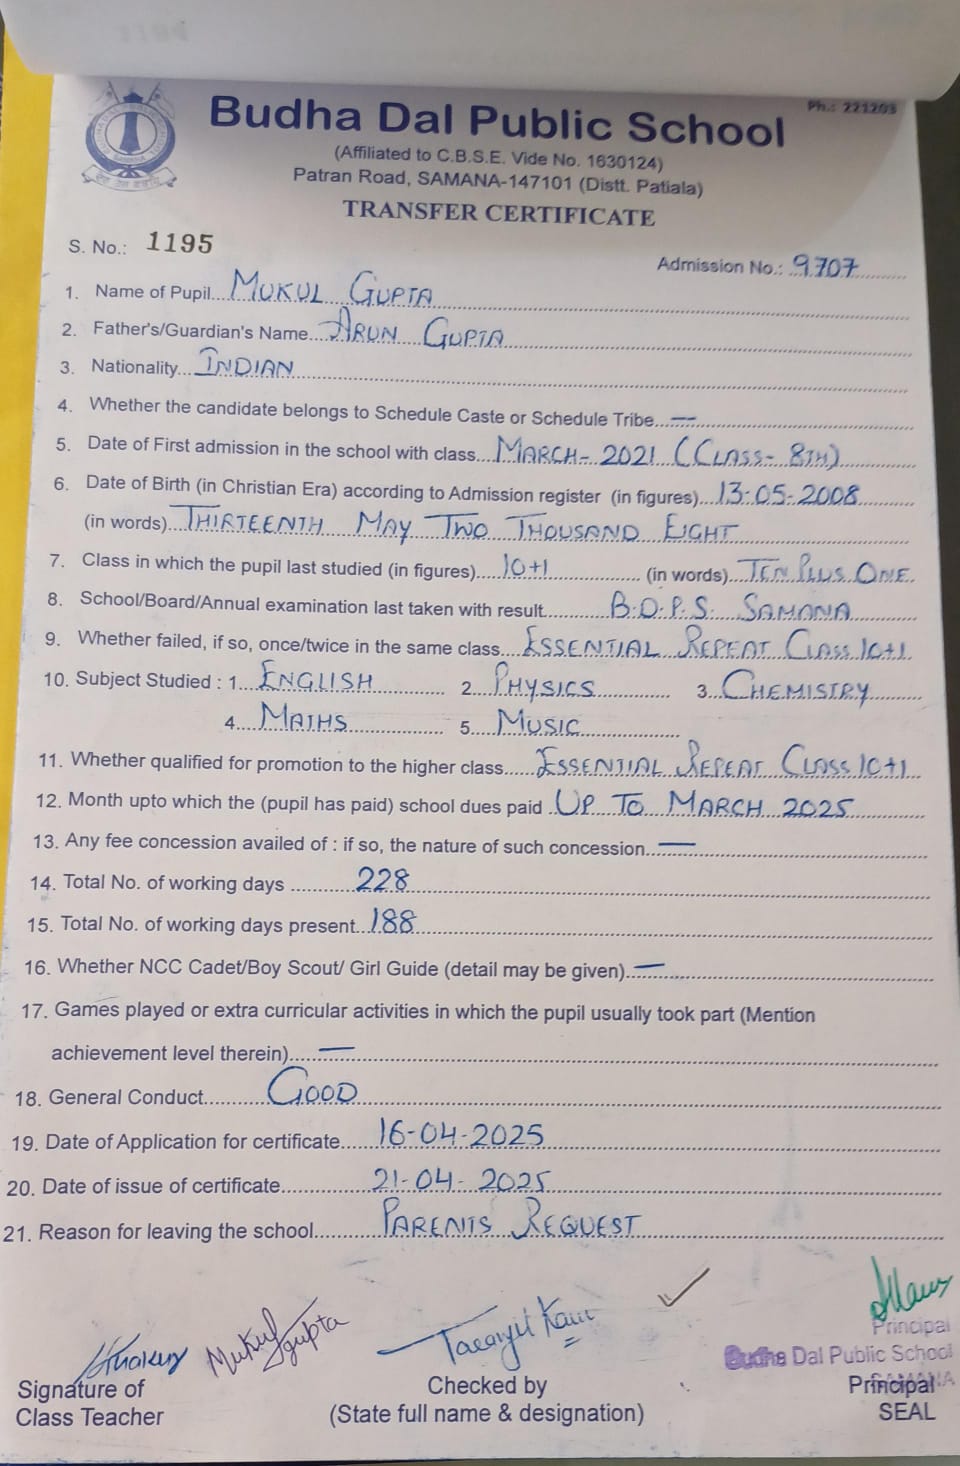 Ph.: 221203
Budha Dal Public School
(Affiliated to C.B.S.E. Vide No. 1630124)
Patran Road, SAMANA-147101 (Distt. Patiala)
TRANSFER CERTIFICATE
S. No.: 1195
Admission No.: 9707
1. Name of Pupil MUKUL GUPTA
2. Father's/Guardian's Name ARUN GUPTA
3. Nationality INDIAN
4. Whether the candidate belongs to Schedule Caste or Schedule Tribe —
5. Date of First admission in the school with class MARCH-2021 (CLASS-8TH)
6. Date of Birth (in Christian Era) according to Admission register (in figures) 13-05-2008
(in words) THIRTEENTH MAY TWO THOUSAND EIGHT
7. Class in which the pupil last studied (in figures) 10+1 (in words) TEN PLUS ONE
8. School/Board/Annual examination last taken with result B.D.P.S. SAMANA
9. Whether failed, if so, once/twice in the same class ESSENTIAL REPEAT CLASS 10+1
10. Subject Studied : 1. ENGLISH 2. PHYSICS 3. CHEMISTRY
4. MATHS 5. MUSIC
11. Whether qualified for promotion to the higher class ESSENTIAL REPEAT CLASS 10+1
12. Month upto which the (pupil has paid) school dues paid UP TO MARCH 2025
13. Any fee concession availed of : if so, the nature of such concession —
14. Total No. of working days 228
15. Total No. of working days present 188
16. Whether NCC Cadet/Boy Scout/ Girl Guide (detail may be given) —
17. Games played or extra curricular activities in which the pupil usually took part (Mention
achievement level therein) —
18. General Conduct GOOD
19. Date of Application for certificate 16-04-2025
20. Date of issue of certificate 21-04-2025
21. Reason for leaving the school PARENTS REQUEST
Mukul Gupta
Principal
Budha Dal Public School
SAMANA
Signature of
Class Teacher
Checked by
(State full name & designation)
Principal
SEAL